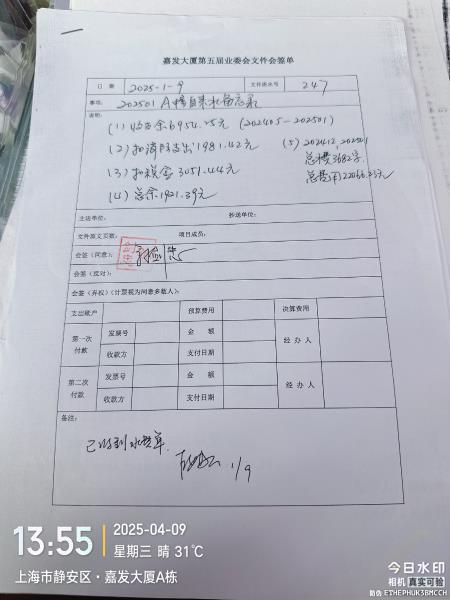 嘉发大厦第五届业委会文件会签单
日期 2025-1-9 文件流水号 247
事项: 202501 A幢自来水备忘录
说明:
(1) 收益余6954.25元 (202405-202501)
(2) 扣消防支出1981.42元 (5) 202412, 202501
(3) 扣税金3051.44元 总楼3682字
(4) 总余1921.39元 总费用22066.23元
主送单位: 抄送单位:
文件原文页数: 项目成员:
会签(同意):
会签(反对):
会签(弃权)(计票视为同意多数人):
支出账户 预算费用 决算费用
第一次付款 发票号 金额 经办人
收款方 支付日期
第二次付款 发票号 金额 经办人
收款方 支付日期
备注:
已收到水费单.
1/9
13:55 2025-04-09
星期三 晴 31℃
上海市静安区·嘉发大厦A栋
今日水印
相机 真实可验
防伪 ETHEPHUK3BMCCH